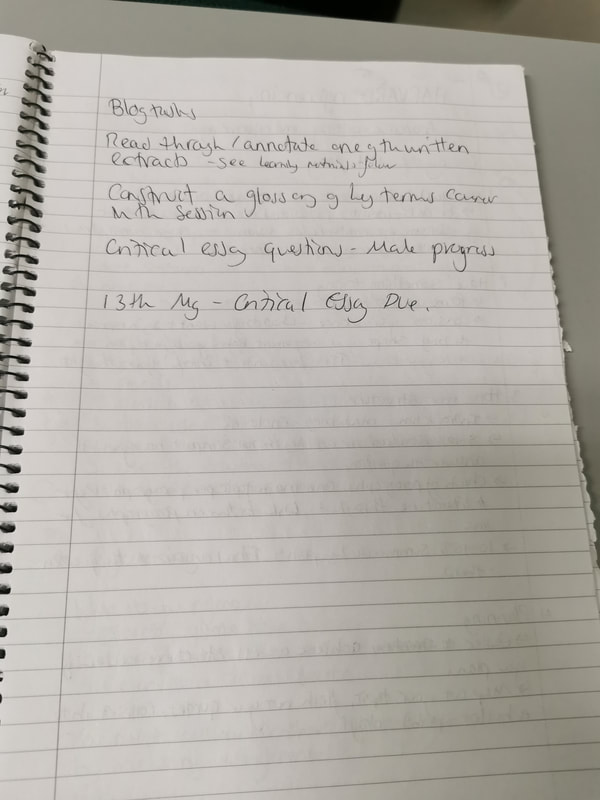 Blog tasks
Read through / annotate one of the written
extracts - see learning materials folder
Construct a glossary of key terms
with session
Critical essay questions - Make progress
13th May - Critical Essay Due.